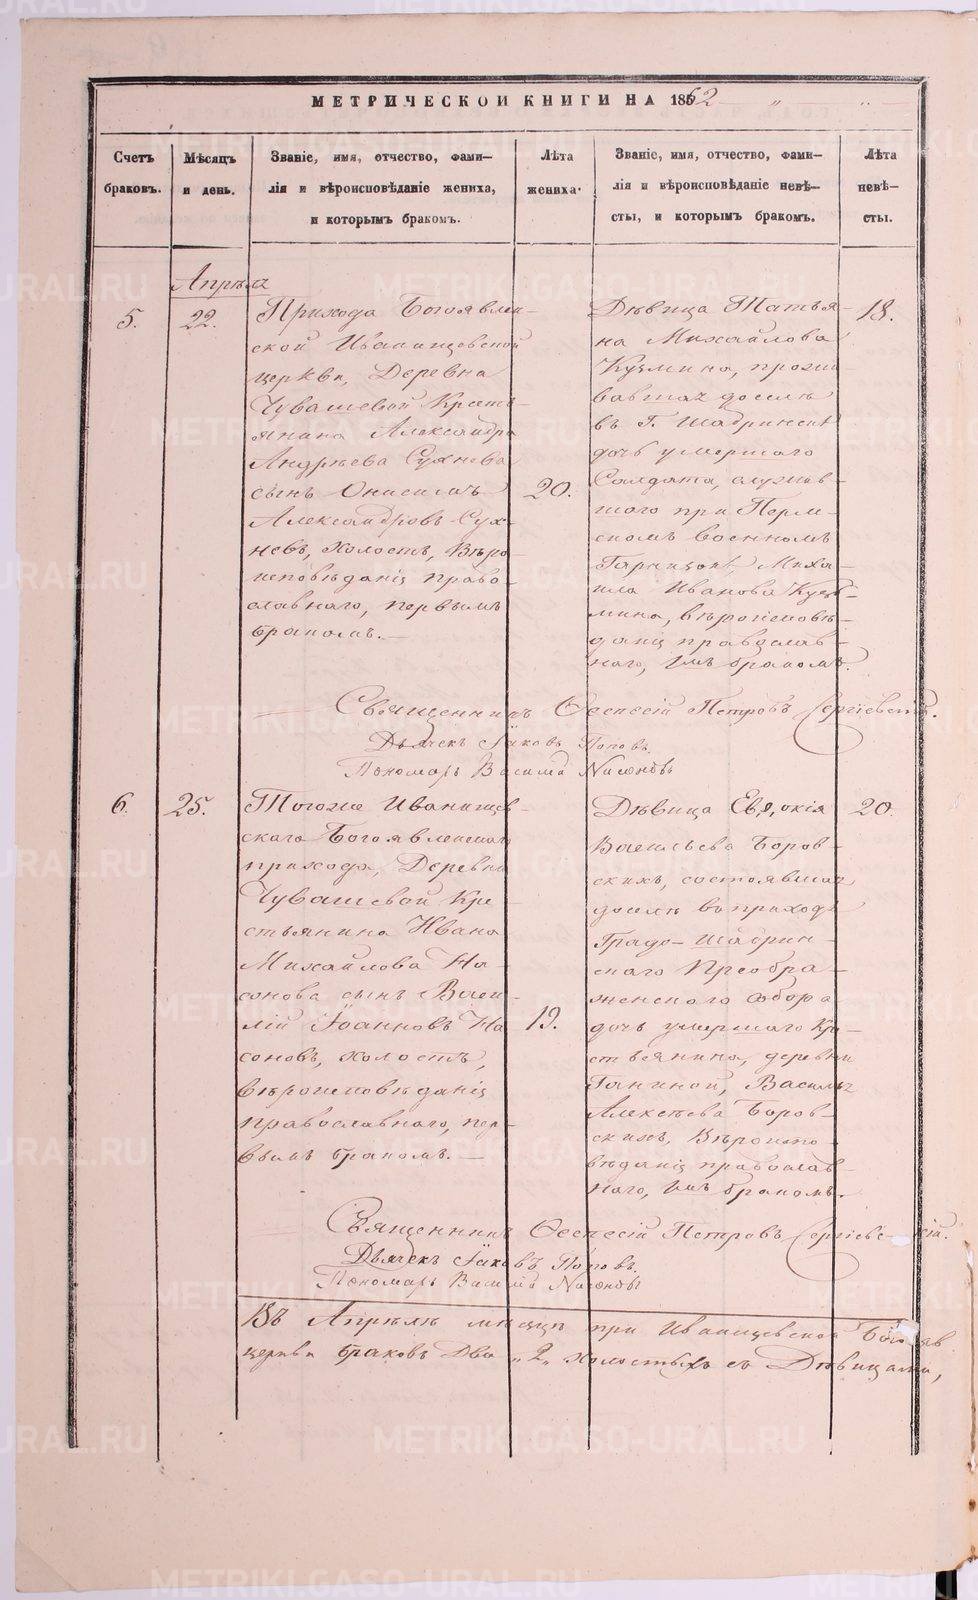 МЕТРИЧЕСКОЙ КНИГИ НА 1862
Счетъ браковъ.
Мѣсяцъ и день.
Званіе, имя, отчество, фами-
лія и вѣроисповѣданіе жениха,
и которымъ бракомъ.
Лѣта жениха.
Званіе, имя, отчество, фами-
лія и вѣроисповѣданіе невѣ-
сты, и которымъ бракомъ.
Лѣта невѣ-
сты.
Апрѣль
5.
22.
Прихода Богоявлен-
ской Иванищевской
церкви, Деревни
Чувашевой Кресть-
янина Александра
Андрѣева Сухнева
сынъ Онисимъ
Александровъ Сух-
невъ, холостъ, Вѣро-
исповѣданія право-
славнаго, первымъ
бракомъ.—
20.
Дѣвица Татья-
на Михайлова
Кузмина, прожи-
вавшая доселѣ
въ Г. Шадринскѣ
дочь умершаго
Солдата, служив-
шаго при Перм-
скомъ военномъ
Гарнизонѣ, Миха-
ила Иванова Кузь-
мина, вѣроисповѣ-
данія православ-
наго, 1мъ бракомъ.
18.
Священникъ Петровъ Сергіевскій.
Дьячекъ Іаковъ Поповъ.
Пономарь Василій
6.
25.
Тогоже Иванищев-
скаго Богоявленскаго
прихода, Деревни
Чувашевой Кре-
стьянина Ивана
Михайлова На-
сонова сынъ Васи-
лій Іоанновъ На-
соновъ, холостъ,
вѣроисповѣданія
православнаго, пер-
вымъ бракомъ.—
19.
Дѣвица Евдокія
Васильева Боров-
скихъ, состоявшая
доселѣ въ приходѣ
Градо-Шадрин-
скаго Преобра-
женскаго собора
дочь умершаго Кре-
стьянина, деревни
Ганиной, Василья
Алексѣева Боров-
скихъ, Вѣроиспо-
вѣданія православ-
наго, 1мъ бракомъ.
20.
Священникъ Петровъ Сергіевскій.
Дьячекъ Іаковъ Поповъ.
Пономарь Василій
Въ Апрѣлѣ мѣсяцѣ при Иванищевской Богояв.
церкви браковъ два „2„ холостыхъ съ Дѣвицами,
METRIKI.GASO-URAL.RU